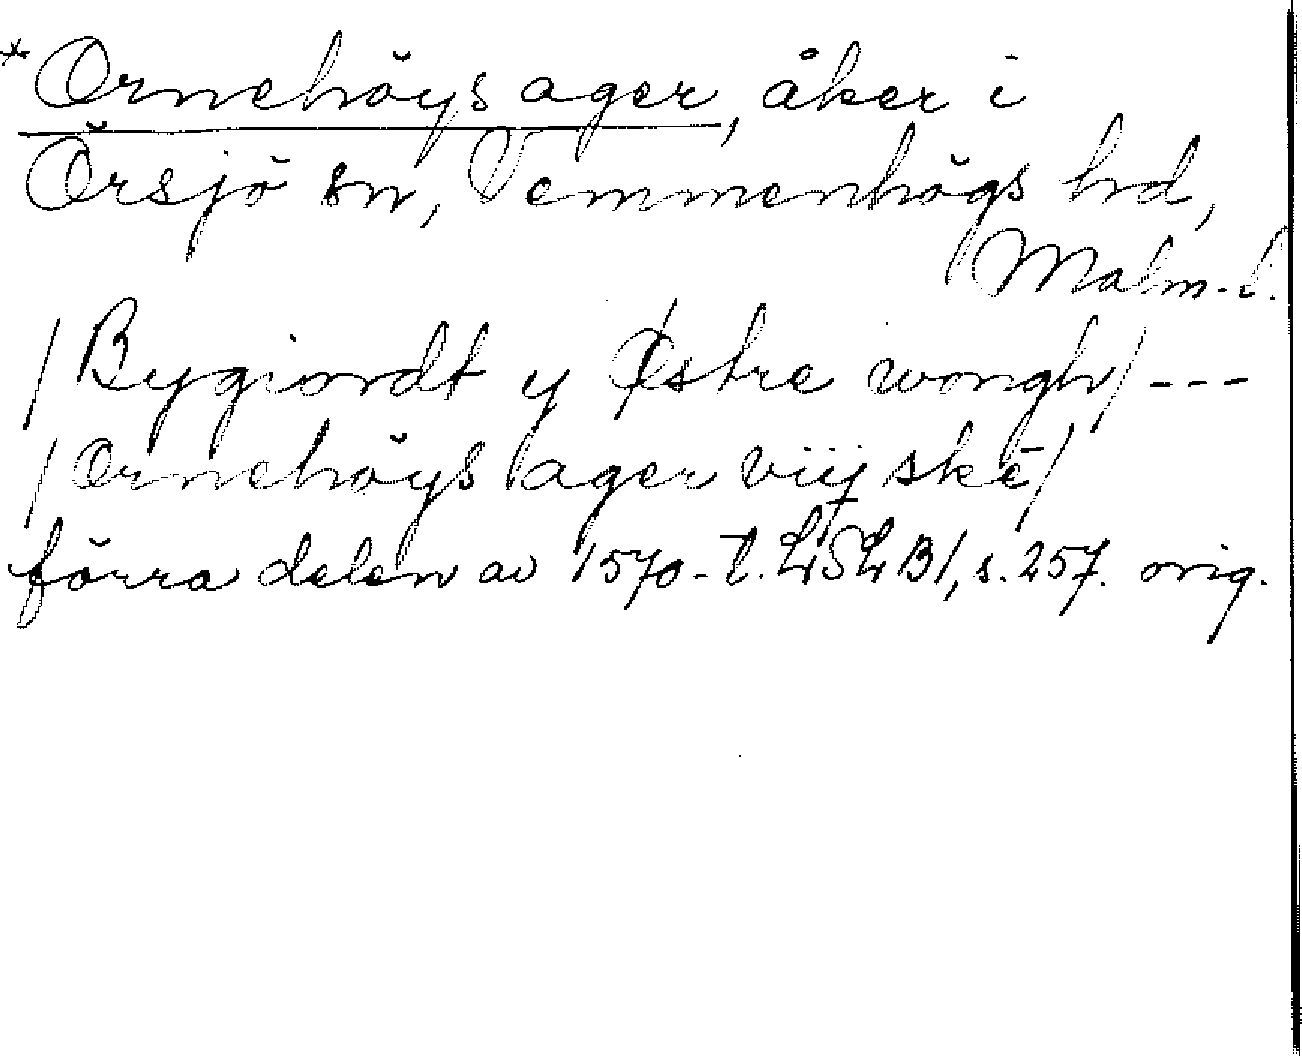 *Ornehöys ager, åker i
Örsjö sn, Vemmenhögs hd,
Malm. l.
/Bygiordt y Østre wongh/ ---
/Ornehöys ager viij ske/
förra delen av 1570-t. LSLB1, s. 257. orig.